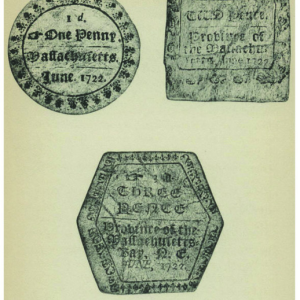 1 d.
One Penny
Massachusetts.
June. 1722.
Two Pence.
Province of
the Massachu
June. 1722
THREE
PENCE
Province of the
Massachusetts
Bay. N. E.
June, 1722.